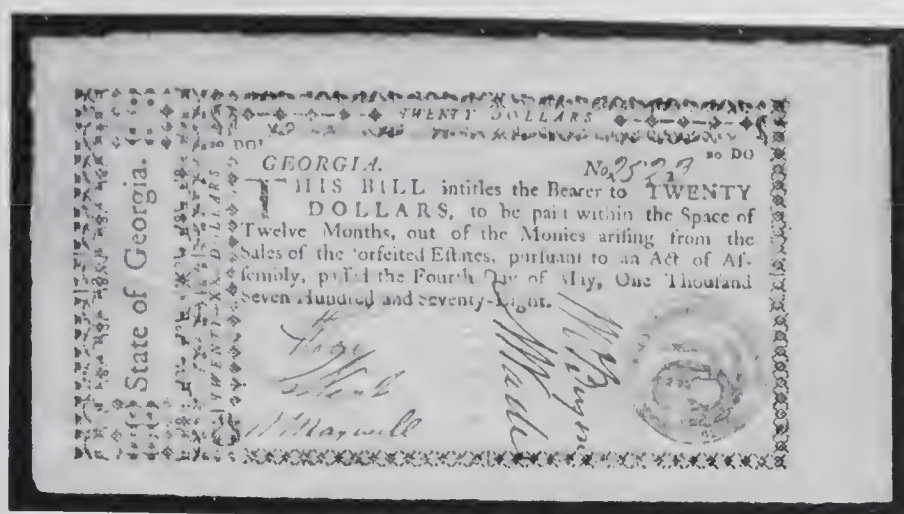 TWENTY DOLLARS
20 DO
20 DO
GEORGIA. No. 2523
THIS BILL intitles the Bearer to TWENTY
DOLLARS, to be paid within the Space of
Twelve Months, out of the Monies ariſing from the
Sales of the forfeited Eſtates, purſuant to an Act of Aſ-
ſembly, paſſed the Fourth Day of May, One Thouſand
Seven Hundred and Seventy-Eight.
Maxwell
State of Georgia.
TWENTY DOLLARS